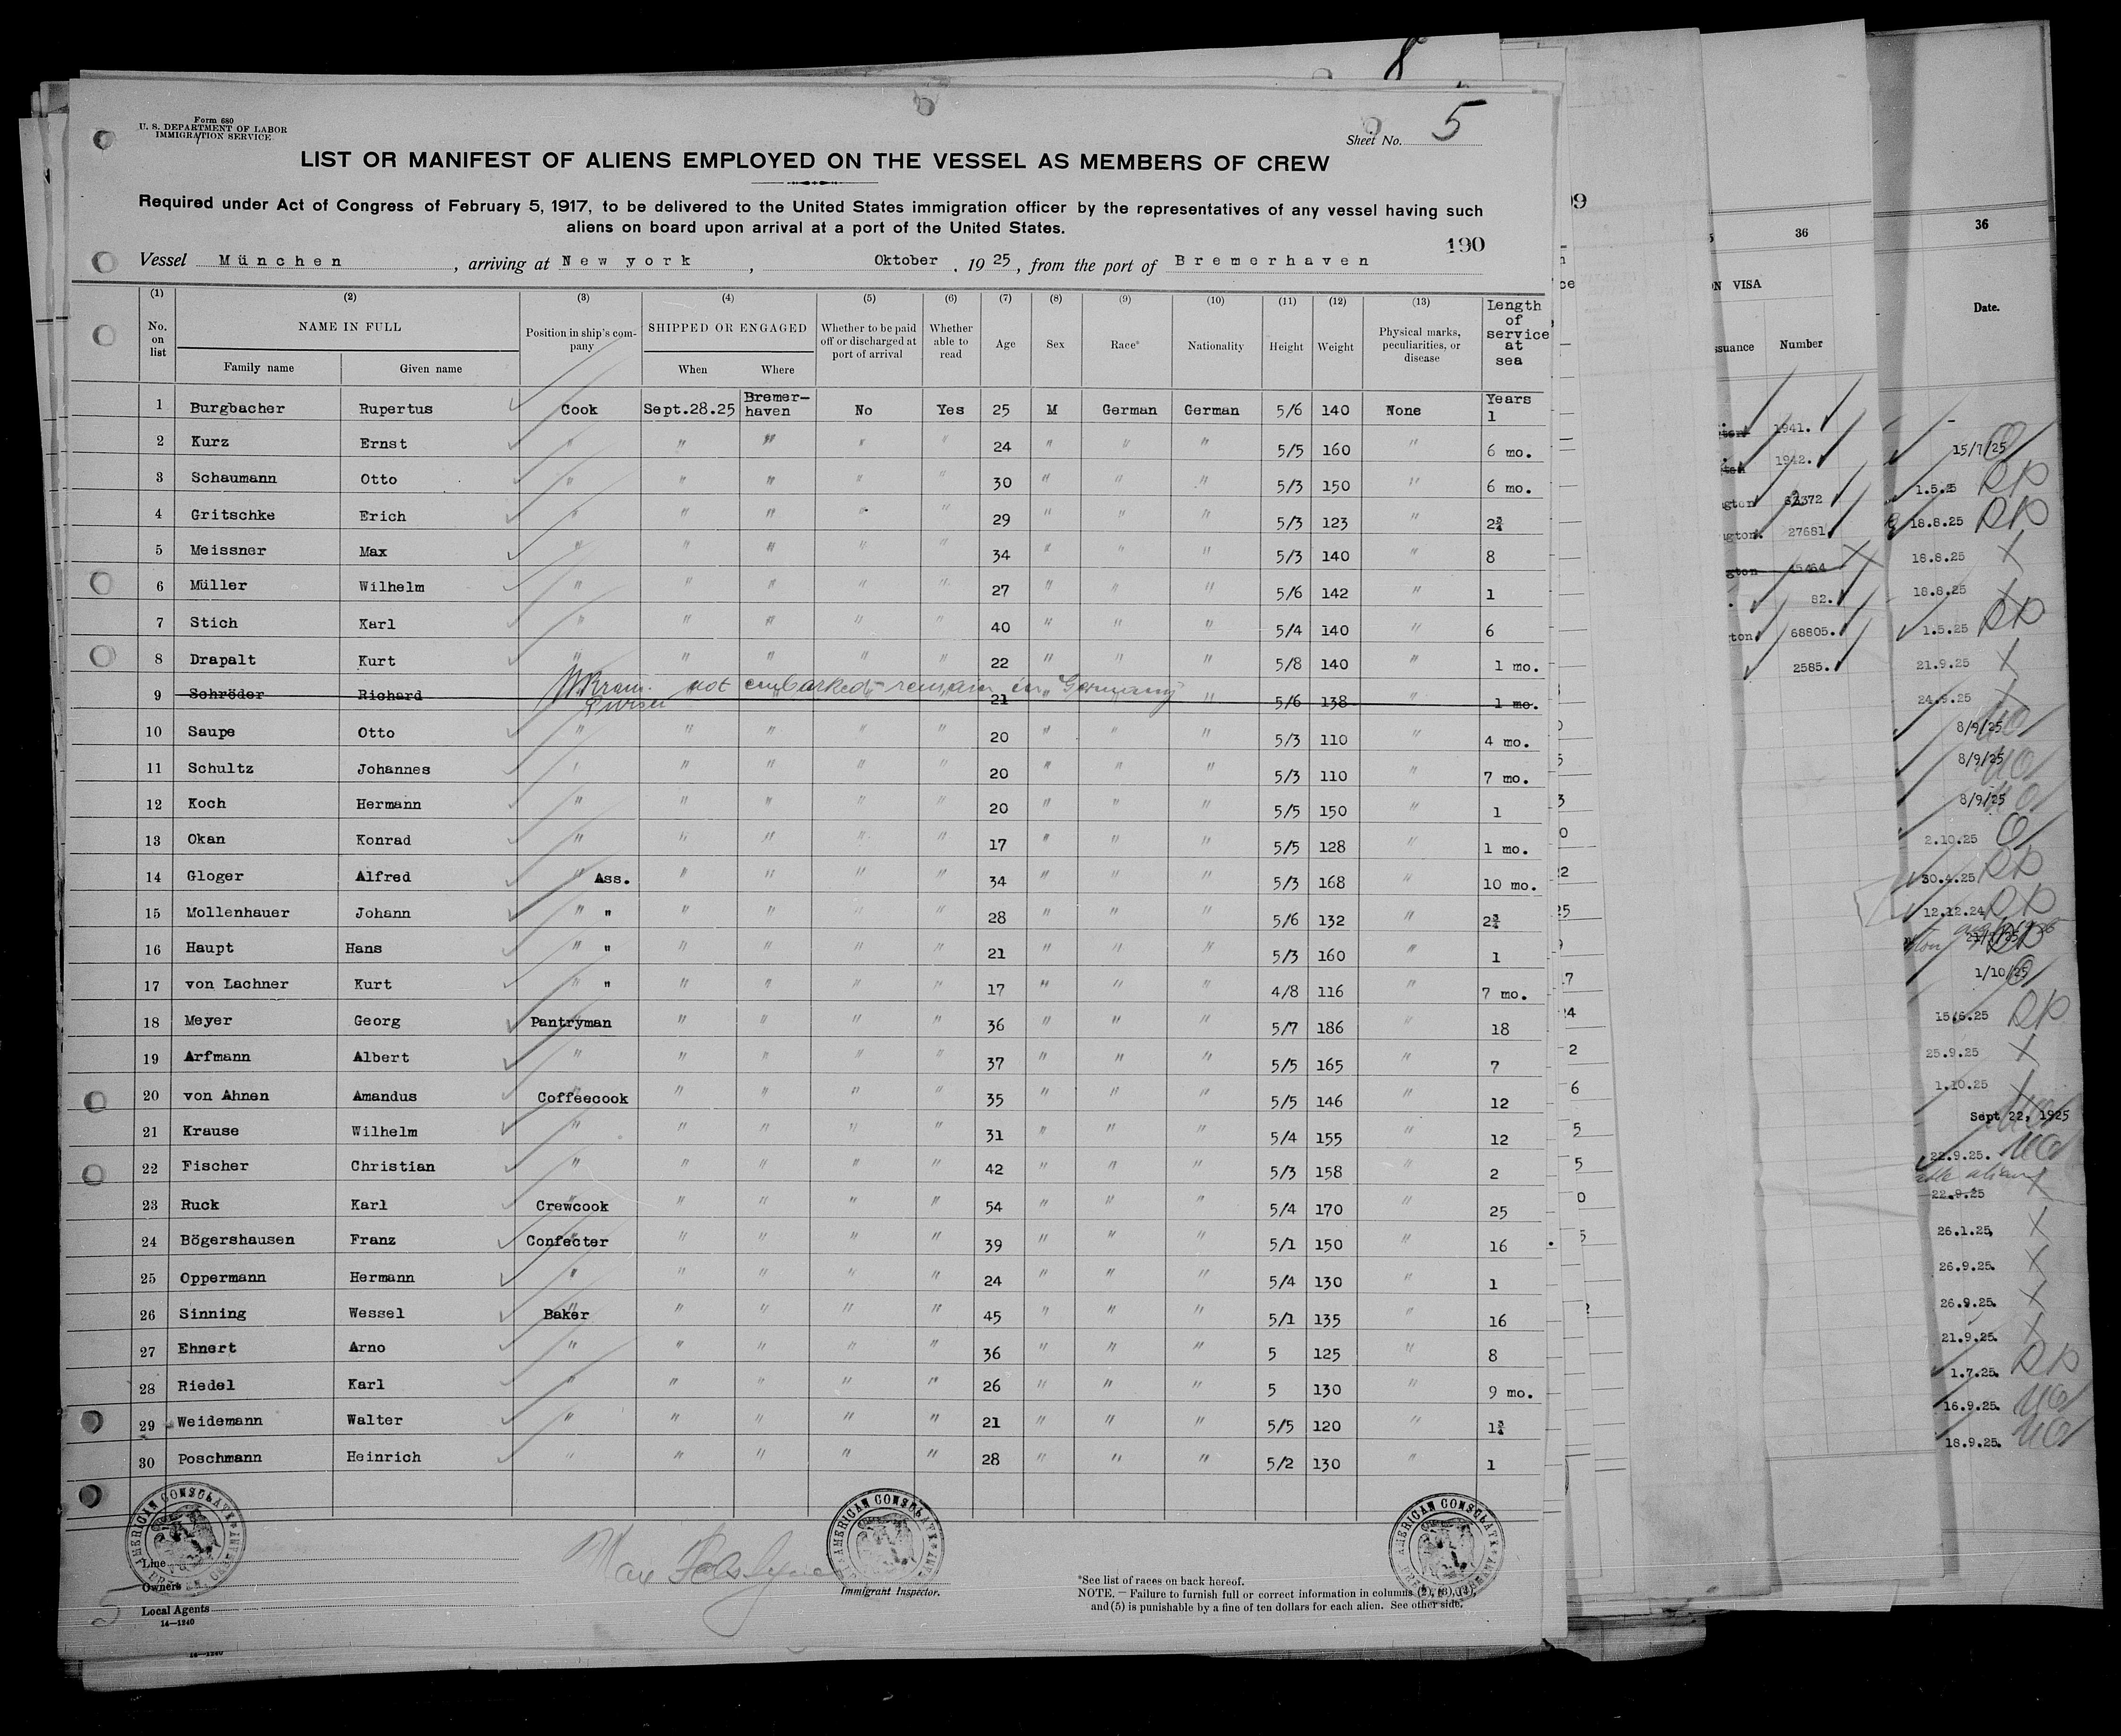 8
Form 680
U. S. DEPARTMENT OF LABOR
IMMIGRATION SERVICE
Sheet No. 5
LIST OR MANIFEST OF ALIENS EMPLOYED ON THE VESSEL AS MEMBERS OF CREW
Required under Act of Congress of February 5, 1917, to be delivered to the United States immigration officer by the representatives of any vessel having such
aliens on board upon arrival at a port of the United States.
190
Vessel München, arriving at New york, Oktober, 1925, from the port of Bremerhaven
(1) (2) (3) (4) (5) (6) (7) (8) (9) (10) (11) (12) (13)
No. on list NAME IN FULL Family name Given name Position in ship's company SHIPPED OR ENGAGED When Where Whether to be paid off or discharged at port of arrival Whether able to read Age Sex Race* Nationality Height Weight Physical marks, peculiarities, or disease Length of service at sea
1 Burgbacher Rupertus Cook Sept.28.25 Bremer-haven No Yes 25 M German German 5/6 140 None Years 1
2 Kurz Ernst " " " " " 24 " " " 5/5 160 " 6 mo.
3 Schaumann Otto " " " " " 30 " " " 5/3 150 " 6 mo.
4 Gritschke Erich " " " " " 29 " " " 5/3 123 " 2¾
5 Meissner Max " " " " " 34 " " " 5/3 140 " 8
6 Müller Wilhelm " " " " " 27 " " " 5/6 142 " 1
7 Stich Karl " " " " " 40 " " " 5/4 140 " 6
8 Drapalt Kurt " " " " " 22 " " " 5/8 140 " 1 mo.
9 Schröder Richard not embarked remain in Germany Purser 21 " 5/6 138 1 mo.
10 Saupe Otto " " " " " 20 " " " 5/3 110 " 4 mo.
11 Schultz Johannes " " " " " 20 " " " 5/3 110 " 7 mo.
12 Koch Hermann " " " " " 20 " " " 5/5 150 " 1
13 Okan Konrad " " " " " 17 " " " 5/5 128 " 1 mo.
14 Gloger Alfred " Ass. " " " " 34 " " " 5/3 168 " 10 mo.
15 Mollenhauer Johann " " " " " " 28 " " " 5/6 132 " 2¾
16 Haupt Hans " " " " " " 21 " " " 5/3 160 " 1
17 von Lachner Kurt " " " " " " 17 " " " 4/8 116 " 7 mo.
18 Meyer Georg Pantryman " " " " 36 " " " 5/7 186 " 18
19 Arfmann Albert " " " " " 37 " " " 5/5 165 " 7
20 von Ahnen Amandus Coffeecook " " " " 35 " " " 5/5 146 " 12
21 Krause Wilhelm " " " " " 31 " " " 5/4 155 " 12
22 Fischer Christian " " " " " 42 " " " 5/3 158 " 2
23 Ruck Karl Crewcook " " " " 54 " " " 5/4 170 " 25
24 Bögershausen Franz Confecter " " " " 39 " " " 5/1 150 " 16
25 Oppermann Hermann " " " " " 24 " " " 5/4 130 " 1
26 Sinning Wessel Baker " " " " 45 " " " 5/1 135 " 16
27 Ehnert Arno " " " " " 36 " " " 5 125 " 8
28 Riedel Karl " " " " " 26 " " " 5 130 " 9 mo.
29 Weidemann Walter " " " " " 21 " " " 5/5 120 " 1¾
30 Poschmann Heinrich " " " " " 28 " " " 5/2 130 " 1
AMERICAN CONSULATE
AMERICAN CONSULATE
AMERICAN CONSULATE
Line
Owners
Local Agents
14—1240
5
Immigrant Inspector.
*See list of races on back hereof.
NOTE.—Failure to furnish full or correct information in columns (2), (3), (12),
and (5) is punishable by a fine of ten dollars for each alien. See other side.
36
VISA
Number
1941.
1942.
27681
45464
82.
68805.
2585.
36
Date.
15/7/25
1.5.25
18.8.25
18.8.25
18.8.25
1.5.25
21.9.25
24.9.25
8/9/25
8/9/25
8/9/25
2.10.25
30.4.25
12.12.24
1/10/25
15.6.25
25.9.25
1.10.25
Sept 22, 1925
22.9.25.
22.9.25
26.1.25,
26.9.25.
26.9.25.
21.9.25.
1.7.25.
16.9.25.
18.9.25.